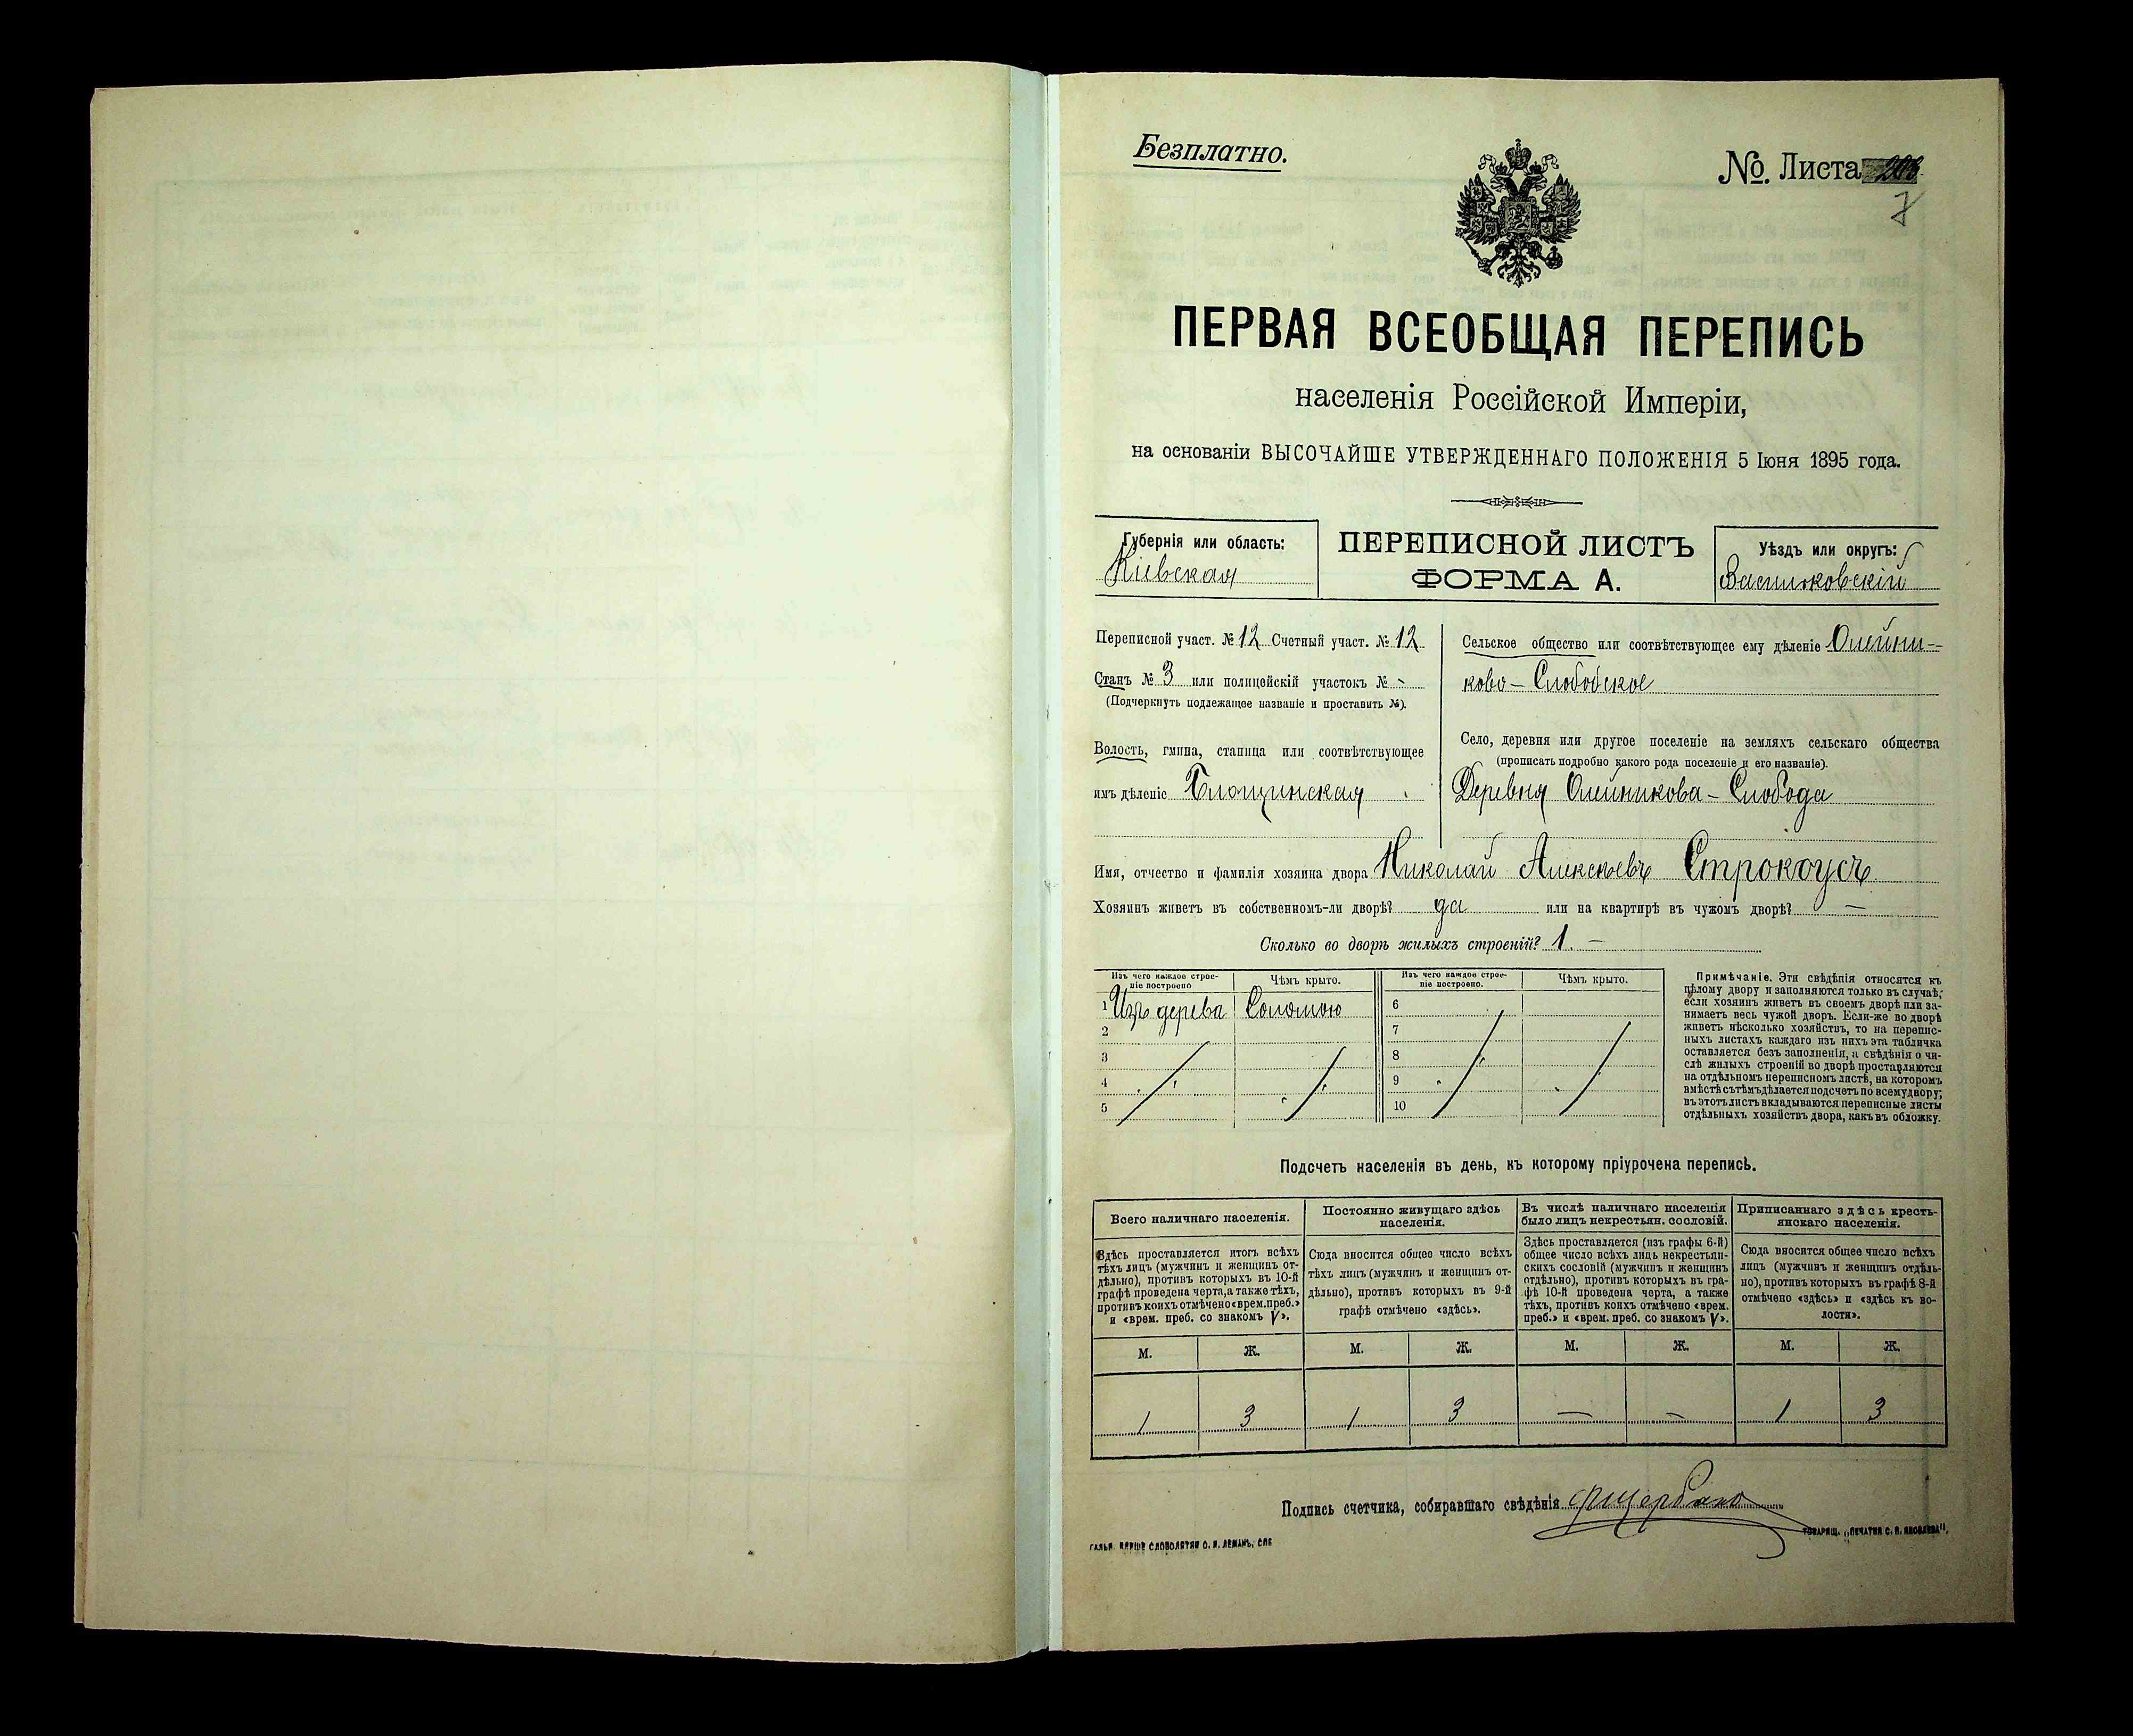 Безплатно.
№. Листа 208
7
ПЕРВАЯ ВСЕОБЩАЯ ПЕРЕПИСЬ
населенія Россійской Имперіи,
на основаніи ВЫСОЧАЙШЕ УТВЕРЖДЕННАГО ПОЛОЖЕНІЯ 5 Іюня 1895 года.
Губернія или область:
Кіевская
ПЕРЕПИСНОЙ ЛИСТЪ
ФОРМА А.
Уѣздъ или округъ:
Васильковскій
Переписной участ. № 12 Счетный участ. № 12
Станъ № 3 или полицейскій участокъ № -
(Подчеркнуть подлежащее названіе и проставить №).
Волость, гмина, станица или соотвѣтствующее
имъ дѣленіе Блощинская
Сельское общество или соотвѣтствующее ему дѣленіе Олейни-
ково-Слободское
Село, деревня или другое поселеніе на земляхъ сельскаго общества
(прописать подробно какого рода поселеніе и его названіе).
Деревня Олейникова-Слобода
Имя, отчество и фамилія хозяина двора Николай Алексѣевъ Строкоусъ
Хозяинъ живетъ въ собственномъ-ли дворѣ? да или на квартирѣ въ чужомъ дворѣ? —
Сколько во дворѣ жилыхъ строеній? 1. —
Изъ чего каждое строе-
ніе построено
Чѣмъ крыто.
Изъ чего каждое строе-
ніе построено.
Чѣмъ крыто.
1 Изъ дерева Соломою 6
2 7
3 8
4 9
5 10
Примѣчаніе. Эти свѣдѣнія относятся къ
цѣлому двору и заполняются только въ случаѣ,
если хозяинъ живетъ въ своемъ дворѣ или за-
нимаетъ весь чужой дворъ. Если-же во дворѣ
живетъ нѣсколько хозяйствъ, то на перепис-
ныхъ листахъ каждаго изъ нихъ эта табличка
оставляется безъ заполненія, а свѣдѣнія о чи-
слѣ жилыхъ строеній во дворѣ проставляются
на отдѣльномъ переписномъ листѣ, на которомъ
вмѣстѣ съ тѣмъ дѣлается подсчетъ по всему двору;
въ этотъ листъ вкладываются переписные листы
отдѣльныхъ хозяйствъ двора, какъ въ обложку.
Подсчетъ населенія въ день, къ которому пріурочена перепись.
Всего наличнаго населенія.
Здѣсь проставляется итогъ всѣхъ
тѣхъ лицъ (мужчинъ и женщинъ от-
дѣльно), противъ которыхъ въ 10-й
графѣ проведена черта, а также тѣхъ,
противъ коихъ отмѣчено «врем. преб.»
и «врем. преб. со знакомъ V».
Постоянно живущаго здѣсь
населенія.
Сюда вносится общее число всѣхъ
тѣхъ лицъ (мужчинъ и женщинъ от-
дѣльно), противъ которыхъ въ 9-й
графѣ отмѣчено «здѣсь».
Въ числѣ наличнаго населенія
было лицъ некрестьян. сословій.
Здѣсь проставляется (изъ графы 6-й)
общее число всѣхъ лицъ некрестьян-
скихъ сословій (мужчинъ и женщинъ
отдѣльно), противъ которыхъ въ гра-
фѣ 10-й проведена черта, а также
тѣхъ, противъ коихъ отмѣчено «врем.
преб.» и «врем. преб. со знакомъ V».
Приписаннаго здѣсь кресть-
янскаго населенія.
Сюда вносится общее число всѣхъ
лицъ (мужчинъ и женщинъ отдѣль-
но), противъ которыхъ въ графѣ 8-й
отмѣчено «здѣсь» и «здѣсь къ во-
лости».
М. Ж. М. Ж. М. Ж. М. Ж.
1 3 1 3 — — 1 3
Подпись счетчика, собиравшаго свѣдѣнія
ТОВАРИЩ. „ПЕЧАТНЯ С. П. ЯКОВЛЕВА".
СЛОВОЛИТНИ О. И. ЛЕМАНЪ, СПБ